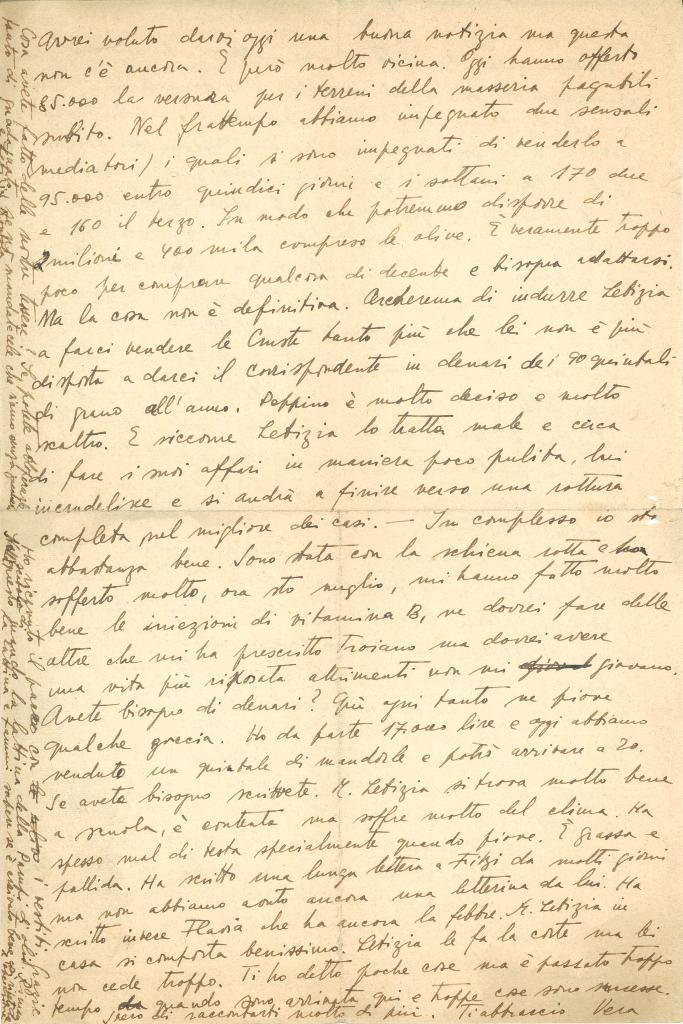 Avrei voluto darvi oggi una buona notizia ma questa
non c'è ancora. È però molto vicina. Oggi hanno offerto
85.000 la versura per i terreni della masseria pagabili
subito. Nel frattempo abbiamo impegnato due sensali
(mediatori) i quali si sono impegnati di venderlo a
95.000 entro quindici giorni e i sottani a 170 due
e 160 il terzo. In modo che potremmo disporre di
2 milioni e 400 mila compreso le olive. È veramente troppo
poco per comprare qualcosa di decente e bisogna adattarsi.
Ma la cosa non è definitiva. Cercheremo di indurre Letizia
a farci vendere le Cruste tanto più che lei non è più
disposta a darci il corrispondente in denari dei 90 quintali
di grano all'anno. Peppino è molto deciso e molto
scaltro. E siccome Letizia lo tratta male e cerca
di fare i suoi affari in maniera poco pulita, lui
incrudelisce e si andrà a finire verso una rottura
completa, nel migliore dei casi. — In complesso io sto
abbastanza bene. Sono stata con la schiena rotta e ho
sofferto molto, ora sto meglio, mi hanno fatto molto
bene le iniezioni di vitamina B, ne dovrei fare delle
altre che mi ha prescritto Troiano ma dovrei avere
una vita più riposata altrimenti non mi giovano.
Avete bisogno di denari? Qui ogni tanto ne piove
qualche goccia. Ho da parte 17.000 lire e oggi abbiamo
venduto un quintale di mandorle e potrò arrivare a 20.
Se avete bisogno scrivete. M. Letizia si trova molto bene
a scuola, è contenta ma soffre molto del clima. Ha
spesso mal di testa specialmente quando piove. È grassa e
pallida. Ha scritto una lunga lettera a Filzi da molti giorni
ma non abbiamo avuto ancora una letterina da lui. Ha
scritto invece Flavia che ha ancora la febbre. M. Letizia in
casa si comporta benissimo. Letizia le fa la corte ma lei
non cede troppo. Ti ho detto poche cose ma è passato troppo
tempo da quando sono arrivata qui e troppe cose sono successe.
Spero di raccontarti molto di più. Ti abbraccio Vera
Cosa avete fatto delle nostre tessere? Se potete
Ho ricevuto il pacco con i vestiti. Grazie.